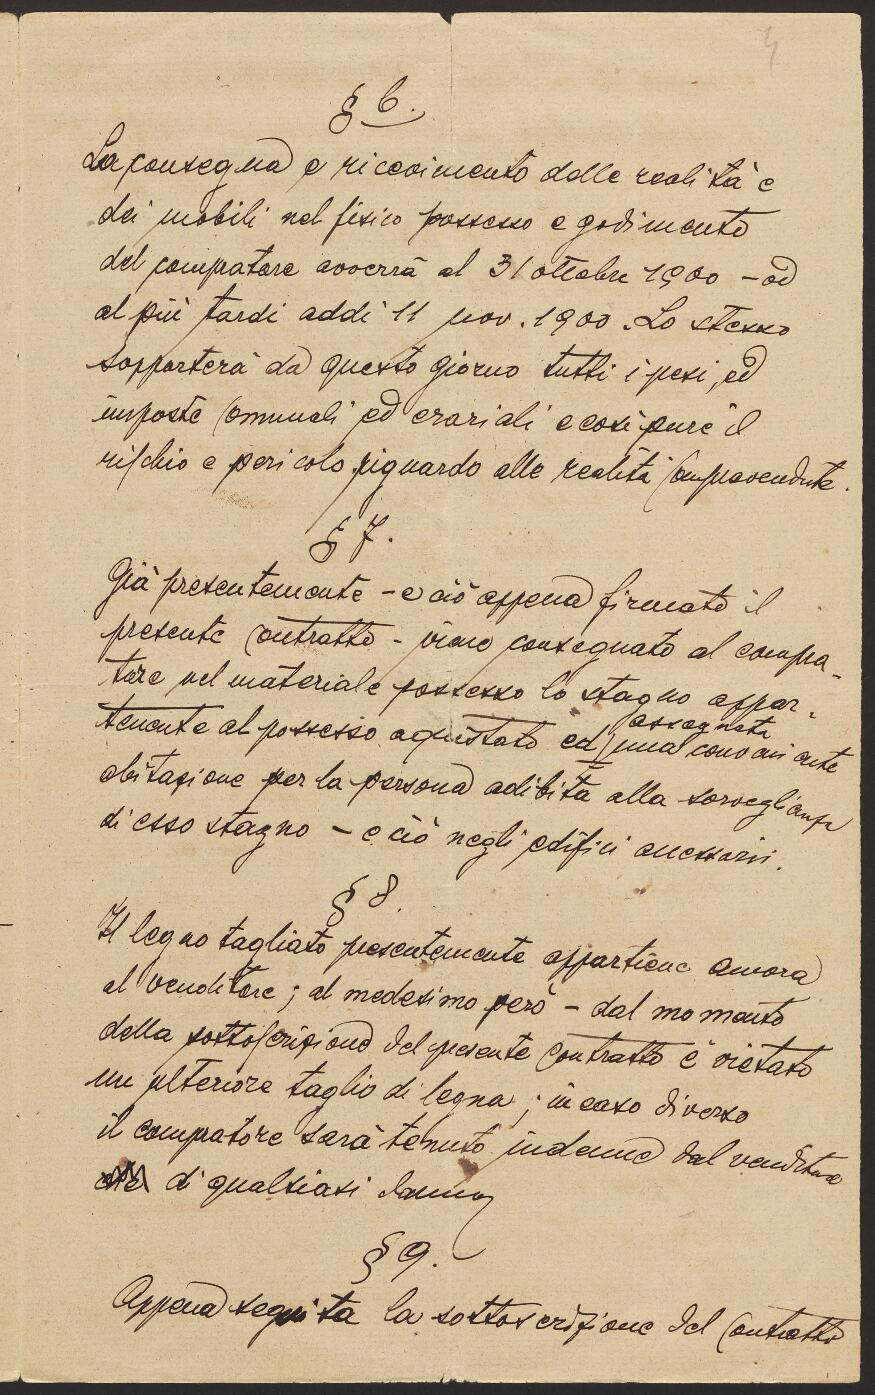 § 6.
La consegna e ricevimento delle realità e
dei mobili nel fisico possesso e godimento
del compratore avverrà al 31 ottobre 1900 – od
al più tardi addì 11 nov. 1900. Lo stesso
sopporterà da questo giorno tutti i pesi, ed
imposte comunali ed erariali e così pure il
rischio e pericolo riguardo alle realità compravendute.
§ 7.
Già presentemente – e ciò appena firmato il
presente contratto – viene consegnato al compra-
tore nel materiale possesso lo stagno appar-
tenente al possesso aquistato ed una conveniente
assegnata
abitazione per la persona adibita alla sorveglianza
di esso stagno – e ciò negli edifici accessori.
§ 8.
Il legno tagliato presentemente appartiene ancora
al venditore; al medesimo però – dal momento
della sottoscrizione del presente contratto è vietato
un ulteriore taglio di legna; in caso diverso
il compratore sarà tenuto indenne dal venditore
di qualsiasi danno
§ 9.
Appena seguita la sottoscrizione del contratto